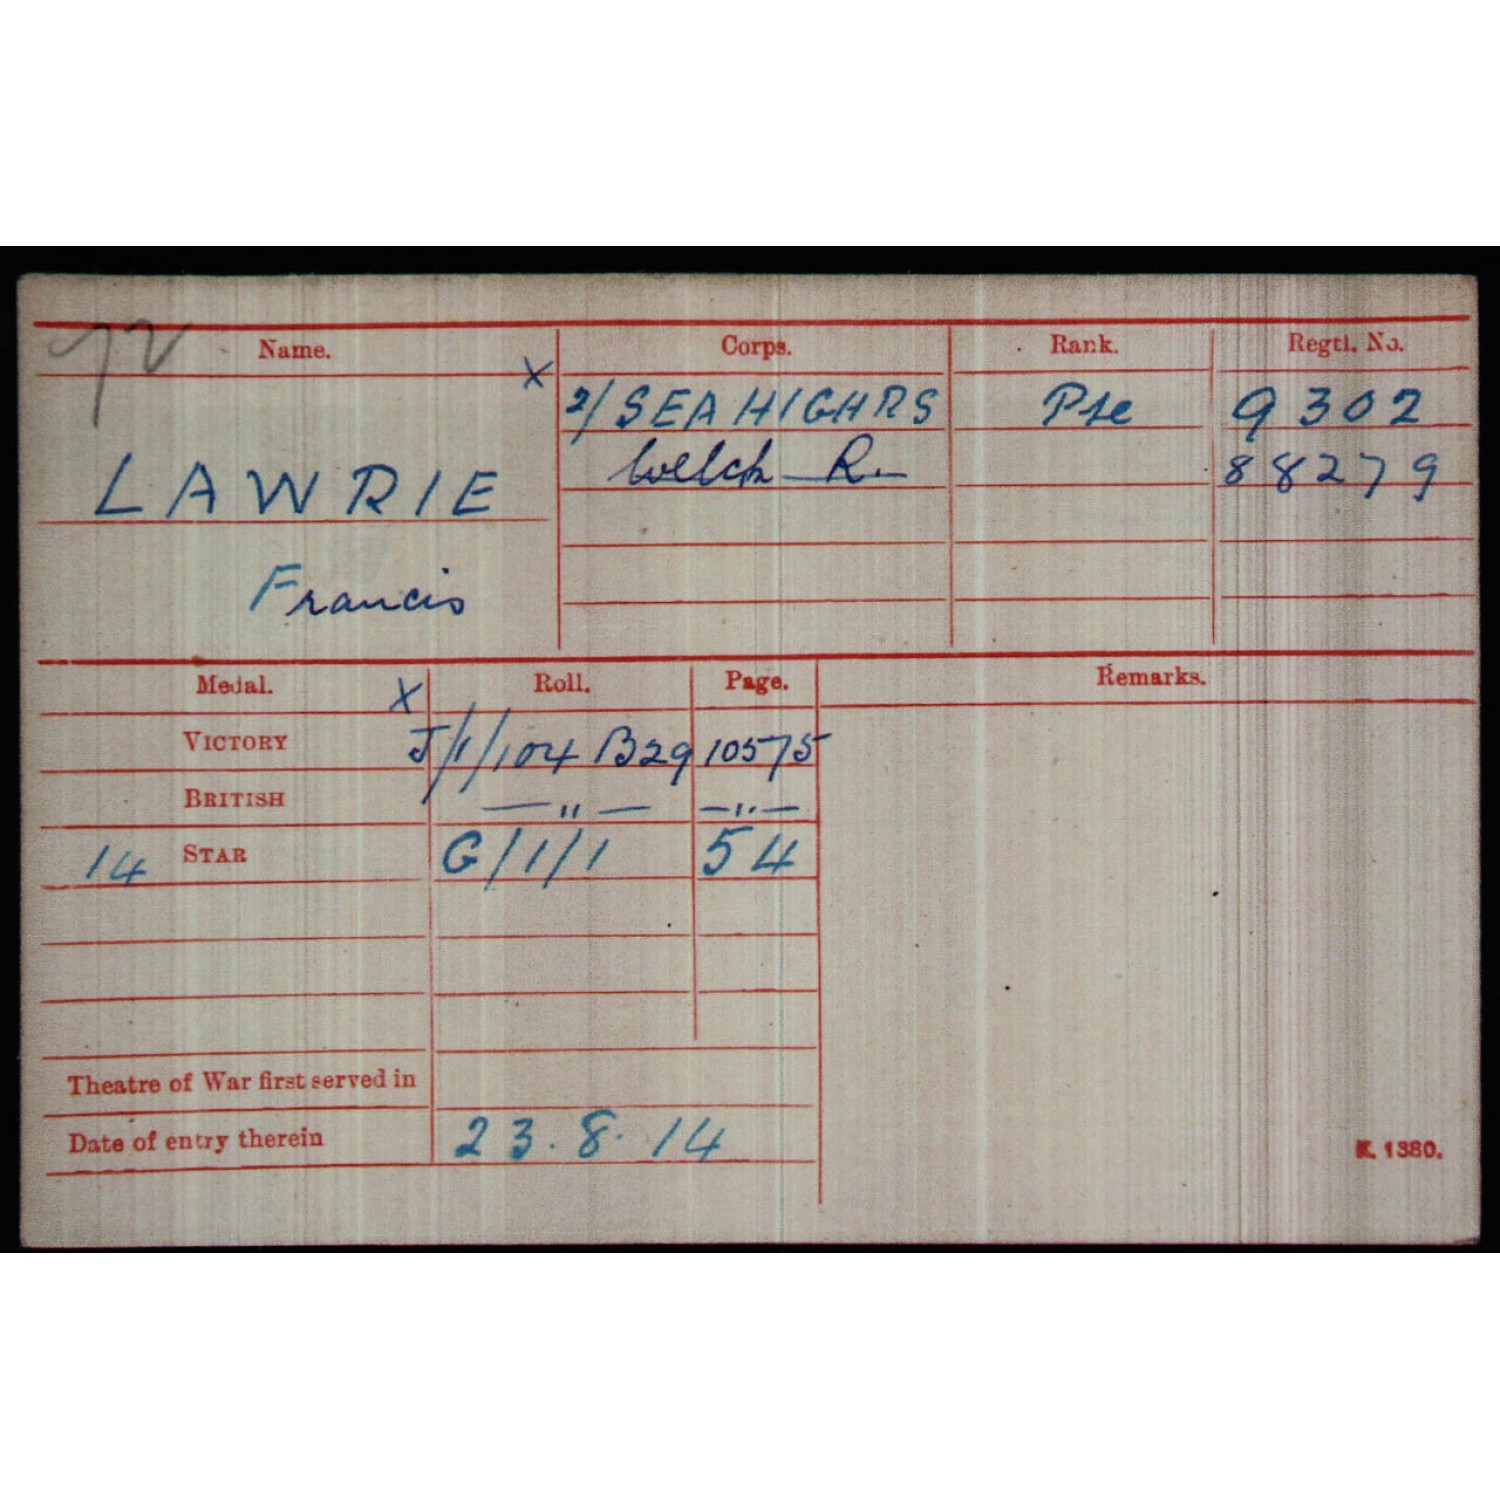 Name. Corps. Rank. Regtl. No.
x 2/ SEA HIGHRS Pte 9302
Welch R. 88279
LAWRIE
Francis
Medal. x Roll. Page. Remarks.
VICTORY J/1/104 B29 10575
BRITISH — " — — " —
14 STAR G/1/1 54
Theatre of War first served in
Date of entry therein 23.8.14
K. 1380.